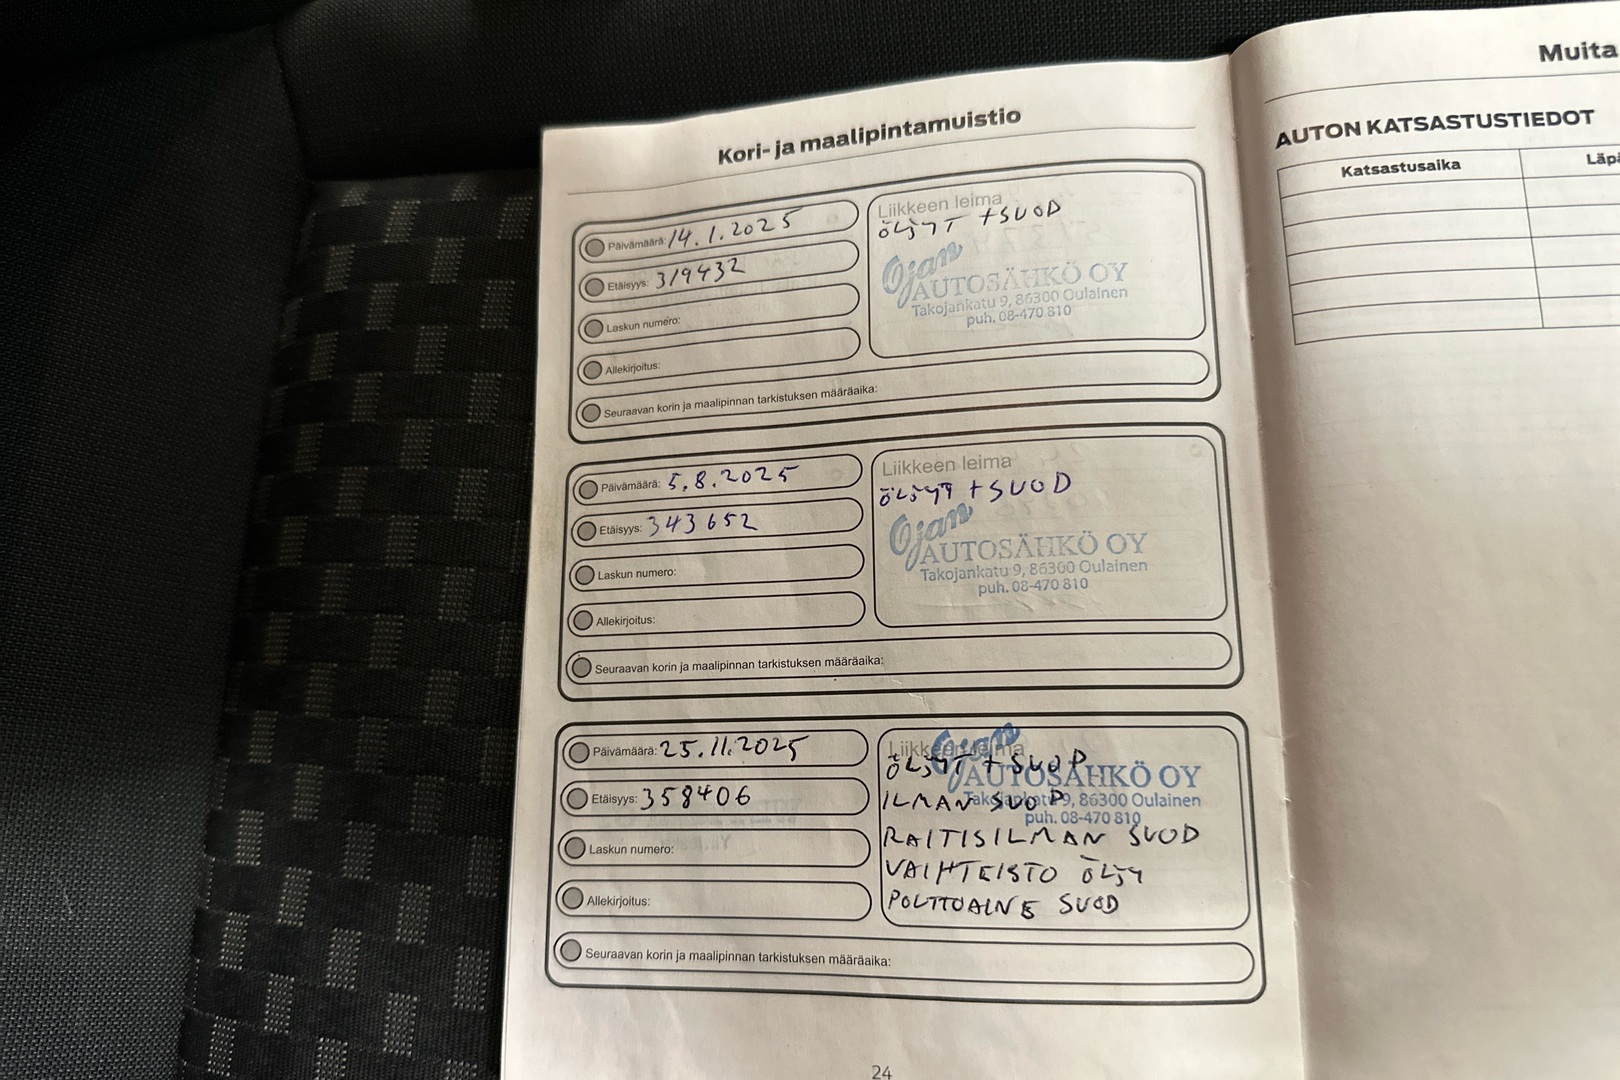 Kori- ja maalipintamuistio
Päivämäärä: 14.1.2025
Etäisyys: 319432
Laskun numero:
Allekirjoitus:
Seuraavan korin ja maalipinnan tarkistuksen määräaika:
Liikkeen leima
ÖLJYT + SUOD
Ojan
AUTOSÄHKÖ OY
Takojankatu 9, 86300 Oulainen
puh. 08-470 810
Päivämäärä: 5.8.2025
Etäisyys: 343652
Laskun numero:
Allekirjoitus:
Seuraavan korin ja maalipinnan tarkistuksen määräaika:
Liikkeen leima
ÖLJYT + SUOD
Ojan
AUTOSÄHKÖ OY
Takojankatu 9, 86300 Oulainen
puh. 08-470 810
Päivämäärä: 25.11.2025
Etäisyys: 358406
Laskun numero:
Allekirjoitus:
Seuraavan korin ja maalipinnan tarkistuksen määräaika:
Liikkeen leima
Ojan
ÖLJYT + SUOD
AUTOSÄHKÖ OY
ILMAN SUOD
Takojankatu 9, 86300 Oulainen
puh. 08-470 810
RAITISILMAN SUOD
VAIHTEISTO ÖLJY
POLTTOAINE SUOD
24
Muita
AUTON KATSASTUSTIEDOT
Katsastusaika
Läpä